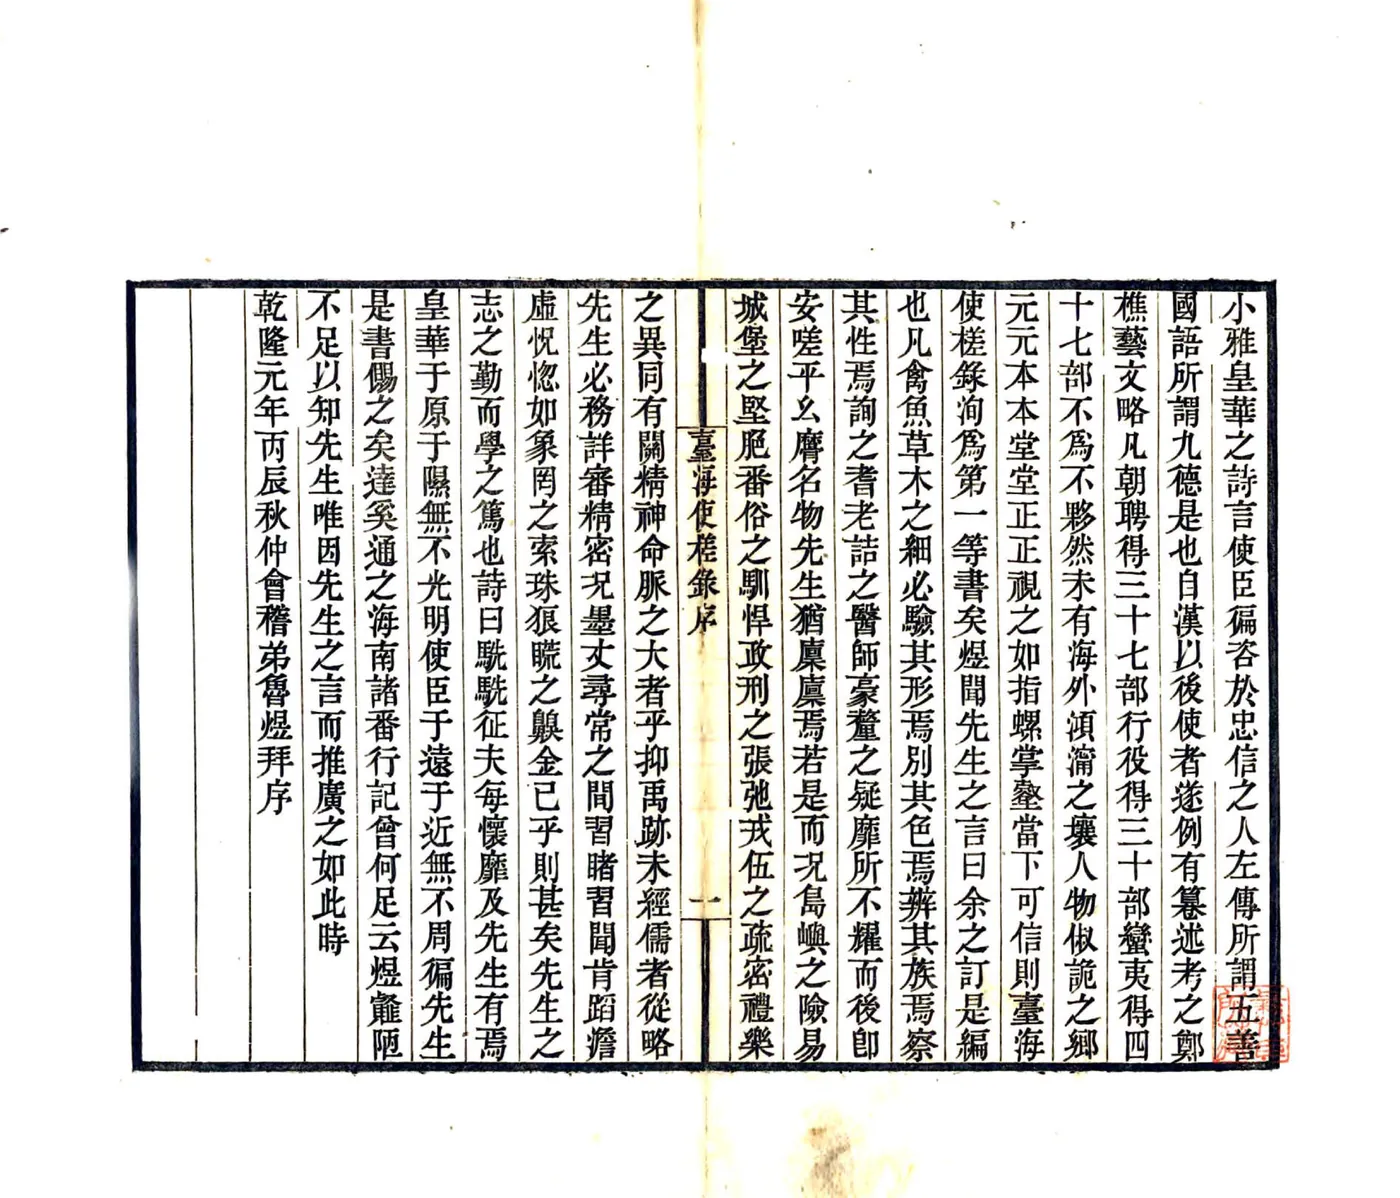 小雅皇華之詩言使臣徧咨於忠信之人左傳所謂五善
國語所謂九德是也自漢以後使者遂例有纂述考之鄭
樵藝文略凡朝聘得三十七部行役得三十部蠻夷得四
十七部不爲不夥然未有海外澒瀰之壤人物俶詭之鄉
元元本本堂堂正正視之如指螺掌壑當下可信則臺海
使槎錄洵爲第一等書矣煜聞先生之言曰余之訂是編
也凡禽魚草木之細必驗其形焉別其色焉辨其族焉察
其性焉詢之耆老詰之醫師豪釐之疑靡所不耀而後卽
安嗟乎幺䴢名物先生猶廩廩焉若是而况島嶼之險易
城堡之堅脃番俗之馴悍政刑之張弛戎伍之疏密禮樂
臺海使槎錄序
一
之異同有關精神命脈之大者乎抑禹跡未經儒者從略
先生必務詳審精密况墨丈尋常之間習睹習聞肯蹈澹
虛怳惚如象罔之索珠狼𥇒之齅金已乎則甚矣先生之
志之勤而學之篤也詩曰駪駪征夫每懷靡及先生有焉
皇華于原于隰無不光明使臣于遠于近無不周徧先生
是書傷之矣達奚通之海南諸番行記曾何足云煜巃陋
不足以知先生唯因先生之言而推廣之如此時
乾隆元年丙辰秋仲會稽弟魯煜拜序